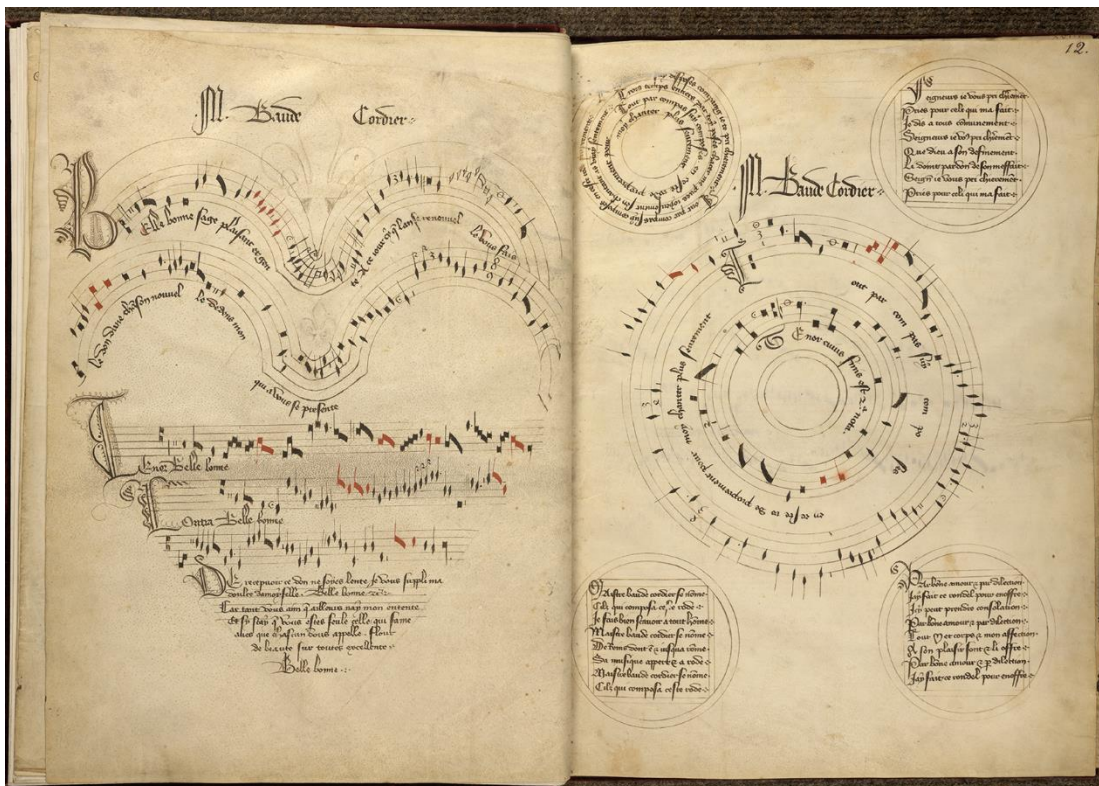 M. Baude Cordier
Belle bonne sage plaisant et gen
te A ce jour cy que lan se renouvel
le vous fais
le don dune chanson nouvel
le dedens mon
qui a vous se presente
Tenor Belle bonne
Contra Belle bonne
De recepuoir ce don ne soyes lente Je vous suppli ma
doulce damoyselle. Belle bonne
Car tant vous aim qailleurs nay mon entente
Et sy scay que vous estes seule celle qui fame
aues que chascun vous appelle. Flour
de beaute sur toutes excellente
Belle bonne
12.
M. Baude Cordier
Seigneurs ie vous pri chierement
Pries pour celi qui ma fait
Je dis a tous communement
Seigneurs ie vous pri chierement
Que dieu a son definement
Li doint pardon de son meffait
Seigneurs ie vous pri chierement
Pries pour celi qui ma fait
Tout par compas suy composee
en ceste rode proprement pour
moy chanter plus seurement
Tout par compas suy com po see
en ce ste ro de proprement pour
moy chanter plus seurement
Tenor cuius finis est 2a nota.
Maistre baude cordier se nome
Cilz qui composa ceste rode
Je fais bien scauoir a tout home
Maistre baude cordier se nome
De reins dont est et iusqua rome
Sa musique appert et a rode
Maistre baude cordier se nome
Cilz qui composa ceste rode
Par bone amour et par dilection
Jay fait ce rondel pour en offre
Icy peut prendre consolation
Par bone amour et par dilection
A son plaisir sont et li offre
Par bone amour et par dilection
Jay fait ce rondel pour en offre